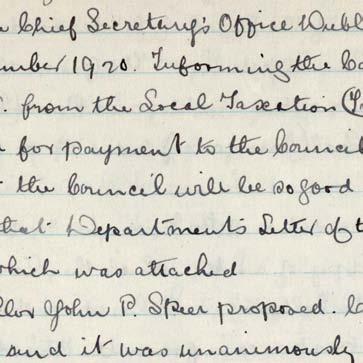 Chief Secretary's Office Dubl
ember 1920. Informing the Co
from the Local Taxation (I
for payment to the Council
the Council will be so good
that Department's Letter of t
which was attached
llor John P. Speer proposed. C
and it was unanimously